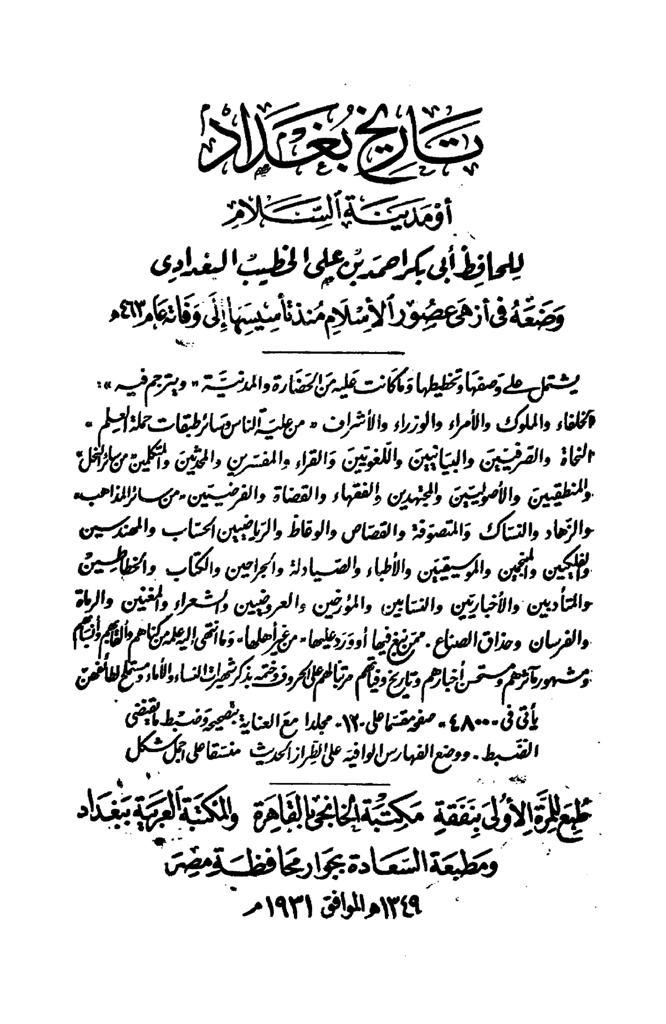 تاريخ بغداد
أو مدينة السلام
للحافظ أبي بكر احمد بن علي الخطيب البغدادي
وضعه في أزهى عصور الأسلام منذ تأسيسها إلى وفاته عام ٤٦٣ هـ
يشتمل على وصفها وتخطيطها وما كانت عليه من الحضارة والمدنية « ويترجم فيه » :
الخلفاء والملوك والأمراء والوزراء والأشراف « من علية الناس وسائر طبقات حملة العلم »
النحاة والصرفيين والبيانيين واللغويين والقراء والمفسرين والمحدثين والمتكلمين من سائر النحل
والمنطقيين والأصوليين والمجتهدين والفقهاء والقضاة والفرضيين « من سائر المذاهب »
والزهاد والنساك والمتصوفة والقصاص والوعاظ والرياضيين الحساب والمهندسين
والفلكيين والمنجمين والموسيقيين والأطباء والصيادلة والجراحين والكتاب والخطاطين
والمتأدبين والأخباريين والنسابين والمؤرخين والعروضيين والشعراء والمغنين والرماة
والفرسان وحذاق الصناع . ممن نبغ فيها أو ورد عليها « من غير أهلها » وما انتهى اليه علمه من كناهم وألقابهم وأنسابهم
ومشهور مآثرهم ومستحسن أخبارهم وتاريخ وفياتهم مرتبا لهم على الحروف وختمه بذكر شهيرات النساء والأماء ومستملح لطائفهن
يأتى فى « ٤٨٠٠٠ » صفحة مقسما على ١٢٠ مجلدا مع العناية بتصحيحه وضبط ما يقتضى
الضبط . ووضع الفهارس الوافيه على الطراز الحديث منسقا على اجمل شكل
طبع للمرة الأولى بنفقة مكتبة الخانجى بالقاهرة والمكتبة العربية ببغداد
ومطبعة السعادة بجوار محافظة مصر
١٣٤٩ هـ الموافق ١٩٣١ م